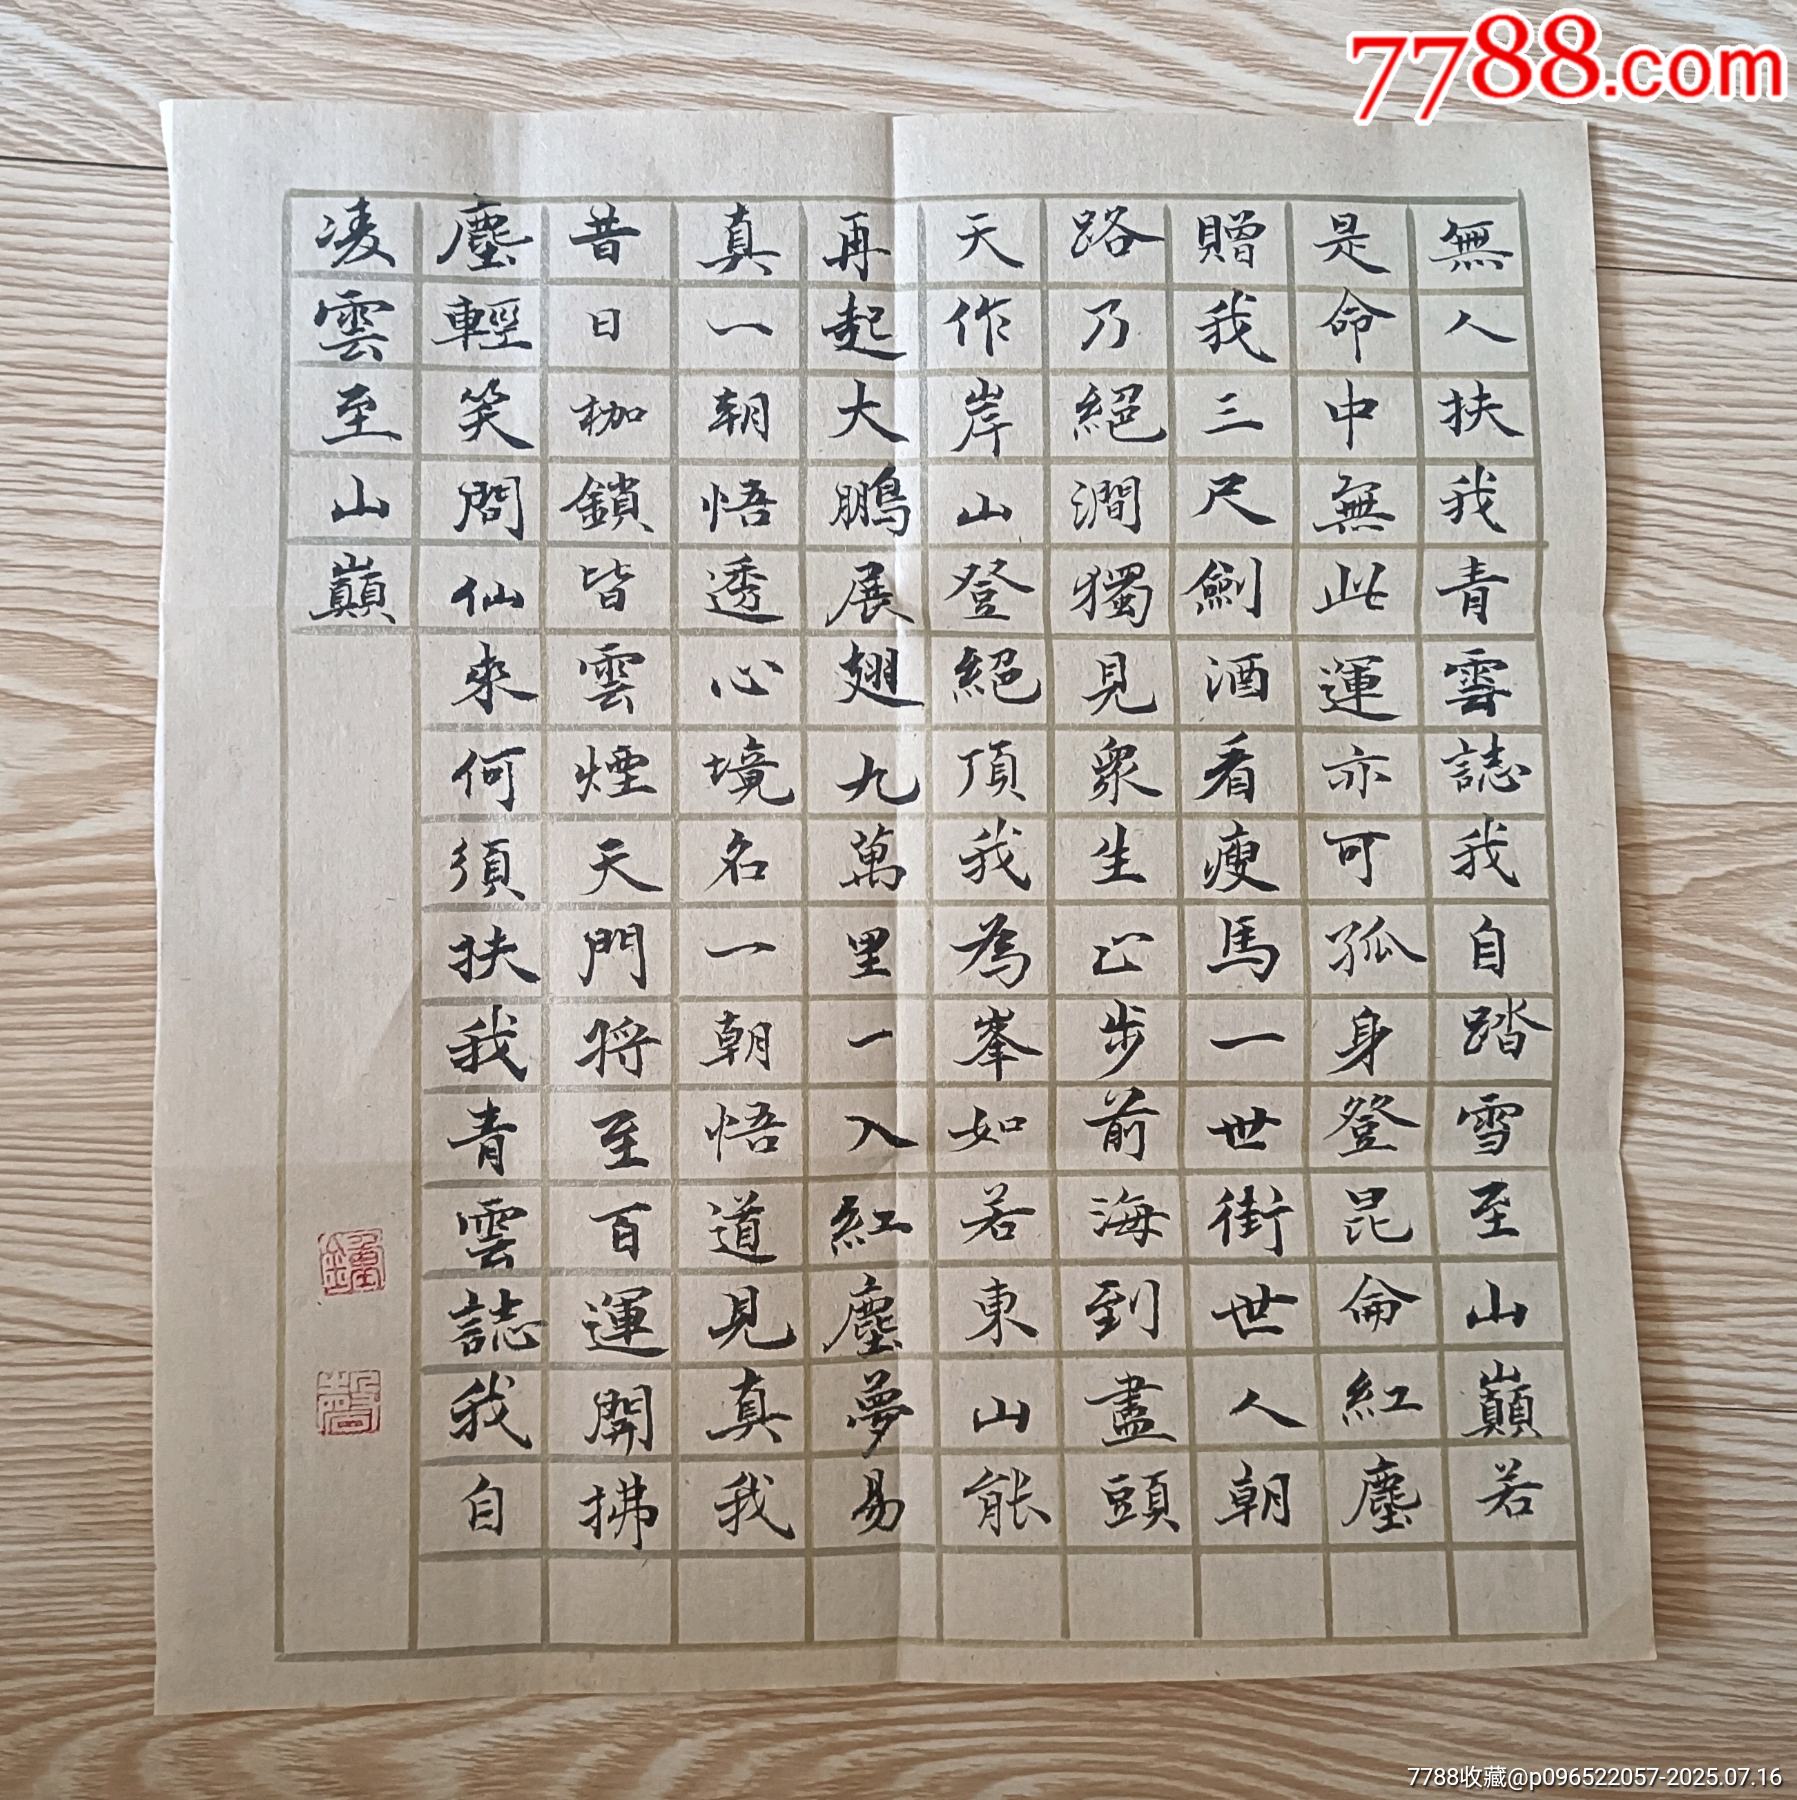 無人扶我青雲誌我自踏雪至山巔若
是命中無此運亦可孤身登昆侖紅塵
贈我三尺劍酒看瘦馬一世街世人朝
路乃絕澗獨見眾生止步前海到盡頭
天作岸山登絕頂我為峯如若東山能
再起大鵬展翅九萬里一入紅塵夢易
真一朝悟透心境名一朝悟道見真我
昔日枷鎖皆雲煙天門將至百運開拂
塵輕笑問仙來何須扶我青雲誌我自
凌雲至山巔
7788.com
7788收藏@p096522057-2025.07.16